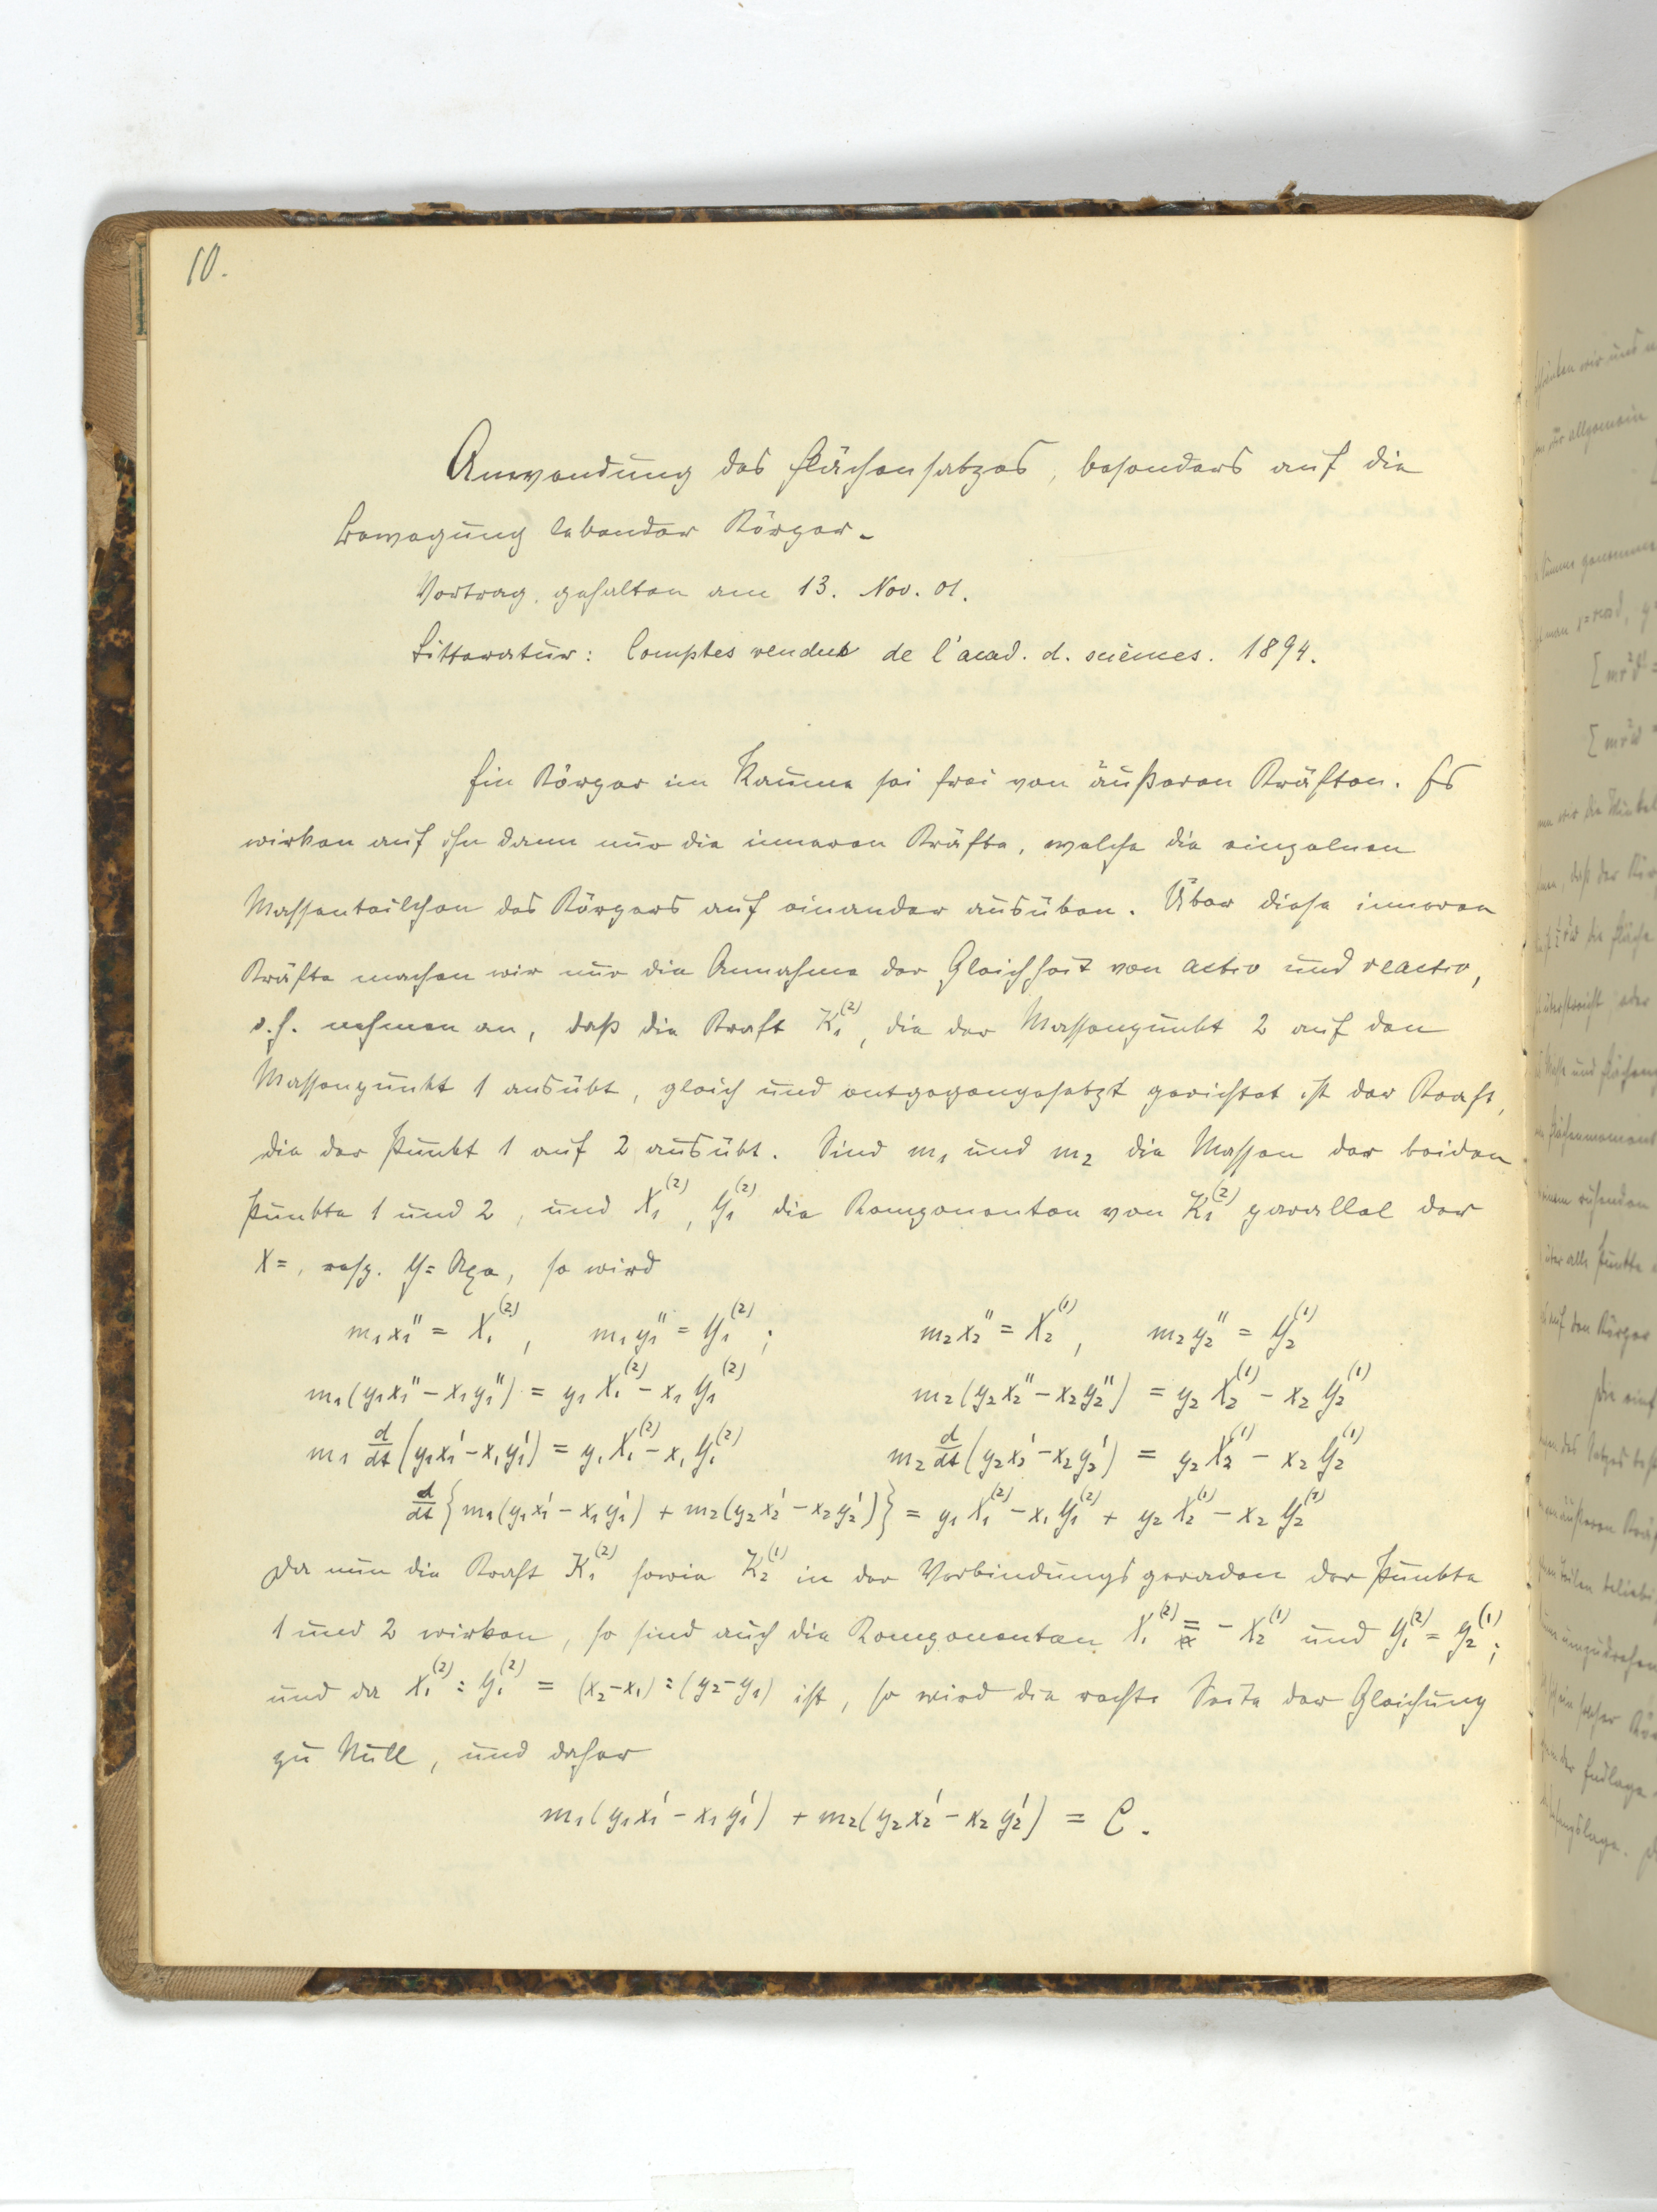 10.
Anwendung des Flächensatzes, besonders auf die
Bewegung lebender Körper.
Vortrag, gehalten am 13. Nov. 01.
Litteratur: Comptes rendus de l'acad. d. sciences. 1894.
Ein Körper im Raume sei frei von äußeren Kräften. Es
wirken auf ihn dann nur die inneren Kräfte, welche die einzelnen
Massenteilchen des Körpers auf einander ausüben. Über diese inneren
Kräfte machen wir nur die Annahme der Gleichheit von actio und reactio,
d.h. nehmen an, daß die Kraft K₁⁽²⁾, die der Massenpunkt 2 auf den
Massenpunkt 1 ausübt, gleich und entgegengesetzt gerichtet ist der Kraft,
die der Punkt 1 auf 2 ausübt. Sind m₁ und m₂ die Massen der beiden
Punkte 1 und 2, und X₁⁽²⁾, Y₁⁽²⁾ die Komponenten von K₁⁽²⁾ parallel der
X=, resp. Y=Axe, so wird
m₁x₁'' = X₁⁽²⁾, m₁y₁'' = Y₁⁽²⁾; m₂x₂'' = X₂⁽¹⁾, m₂y₂'' = Y₂⁽¹⁾
m₁(y₁x₁''-x₁y₁'') = y₁X₁⁽²⁾-x₁Y₁⁽²⁾ m₂(y₂x₂''-x₂y₂'') = y₂X₂⁽¹⁾-x₂Y₂⁽¹⁾
m₁ d/dt (y₁x₁'-x₁y₁') = y₁X₁⁽²⁾-x₁Y₁⁽²⁾ m₂ d/dt (y₂x₂'-x₂y₂') = y₂X₂⁽¹⁾-x₂Y₂⁽¹⁾
d/dt {m₁(y₁x₁'-x₁y₁') + m₂(y₂x₂'-x₂y₂')} = y₁X₁⁽²⁾-x₁Y₁⁽²⁾ + y₂X₂⁽¹⁾-x₂Y₂⁽¹⁾
Da nun die Kraft K₁⁽²⁾ sowie K₂⁽¹⁾ in der Verbindungsgeraden der Punkte
1 und 2 wirken, so sind auch die Komponenten X₁⁽²⁾ = -X₂⁽¹⁾ und Y₁⁽²⁾ = Y₂⁽¹⁾;
und da X₁⁽²⁾ : Y₁⁽²⁾ = (x₂-x₁) : (y₂-y₁) ist, so wird die rechte Seite der Gleichung
zu Null, und daher
m₁(y₁x₁'-x₁y₁') + m₂(y₂x₂'-x₂y₂') = C.